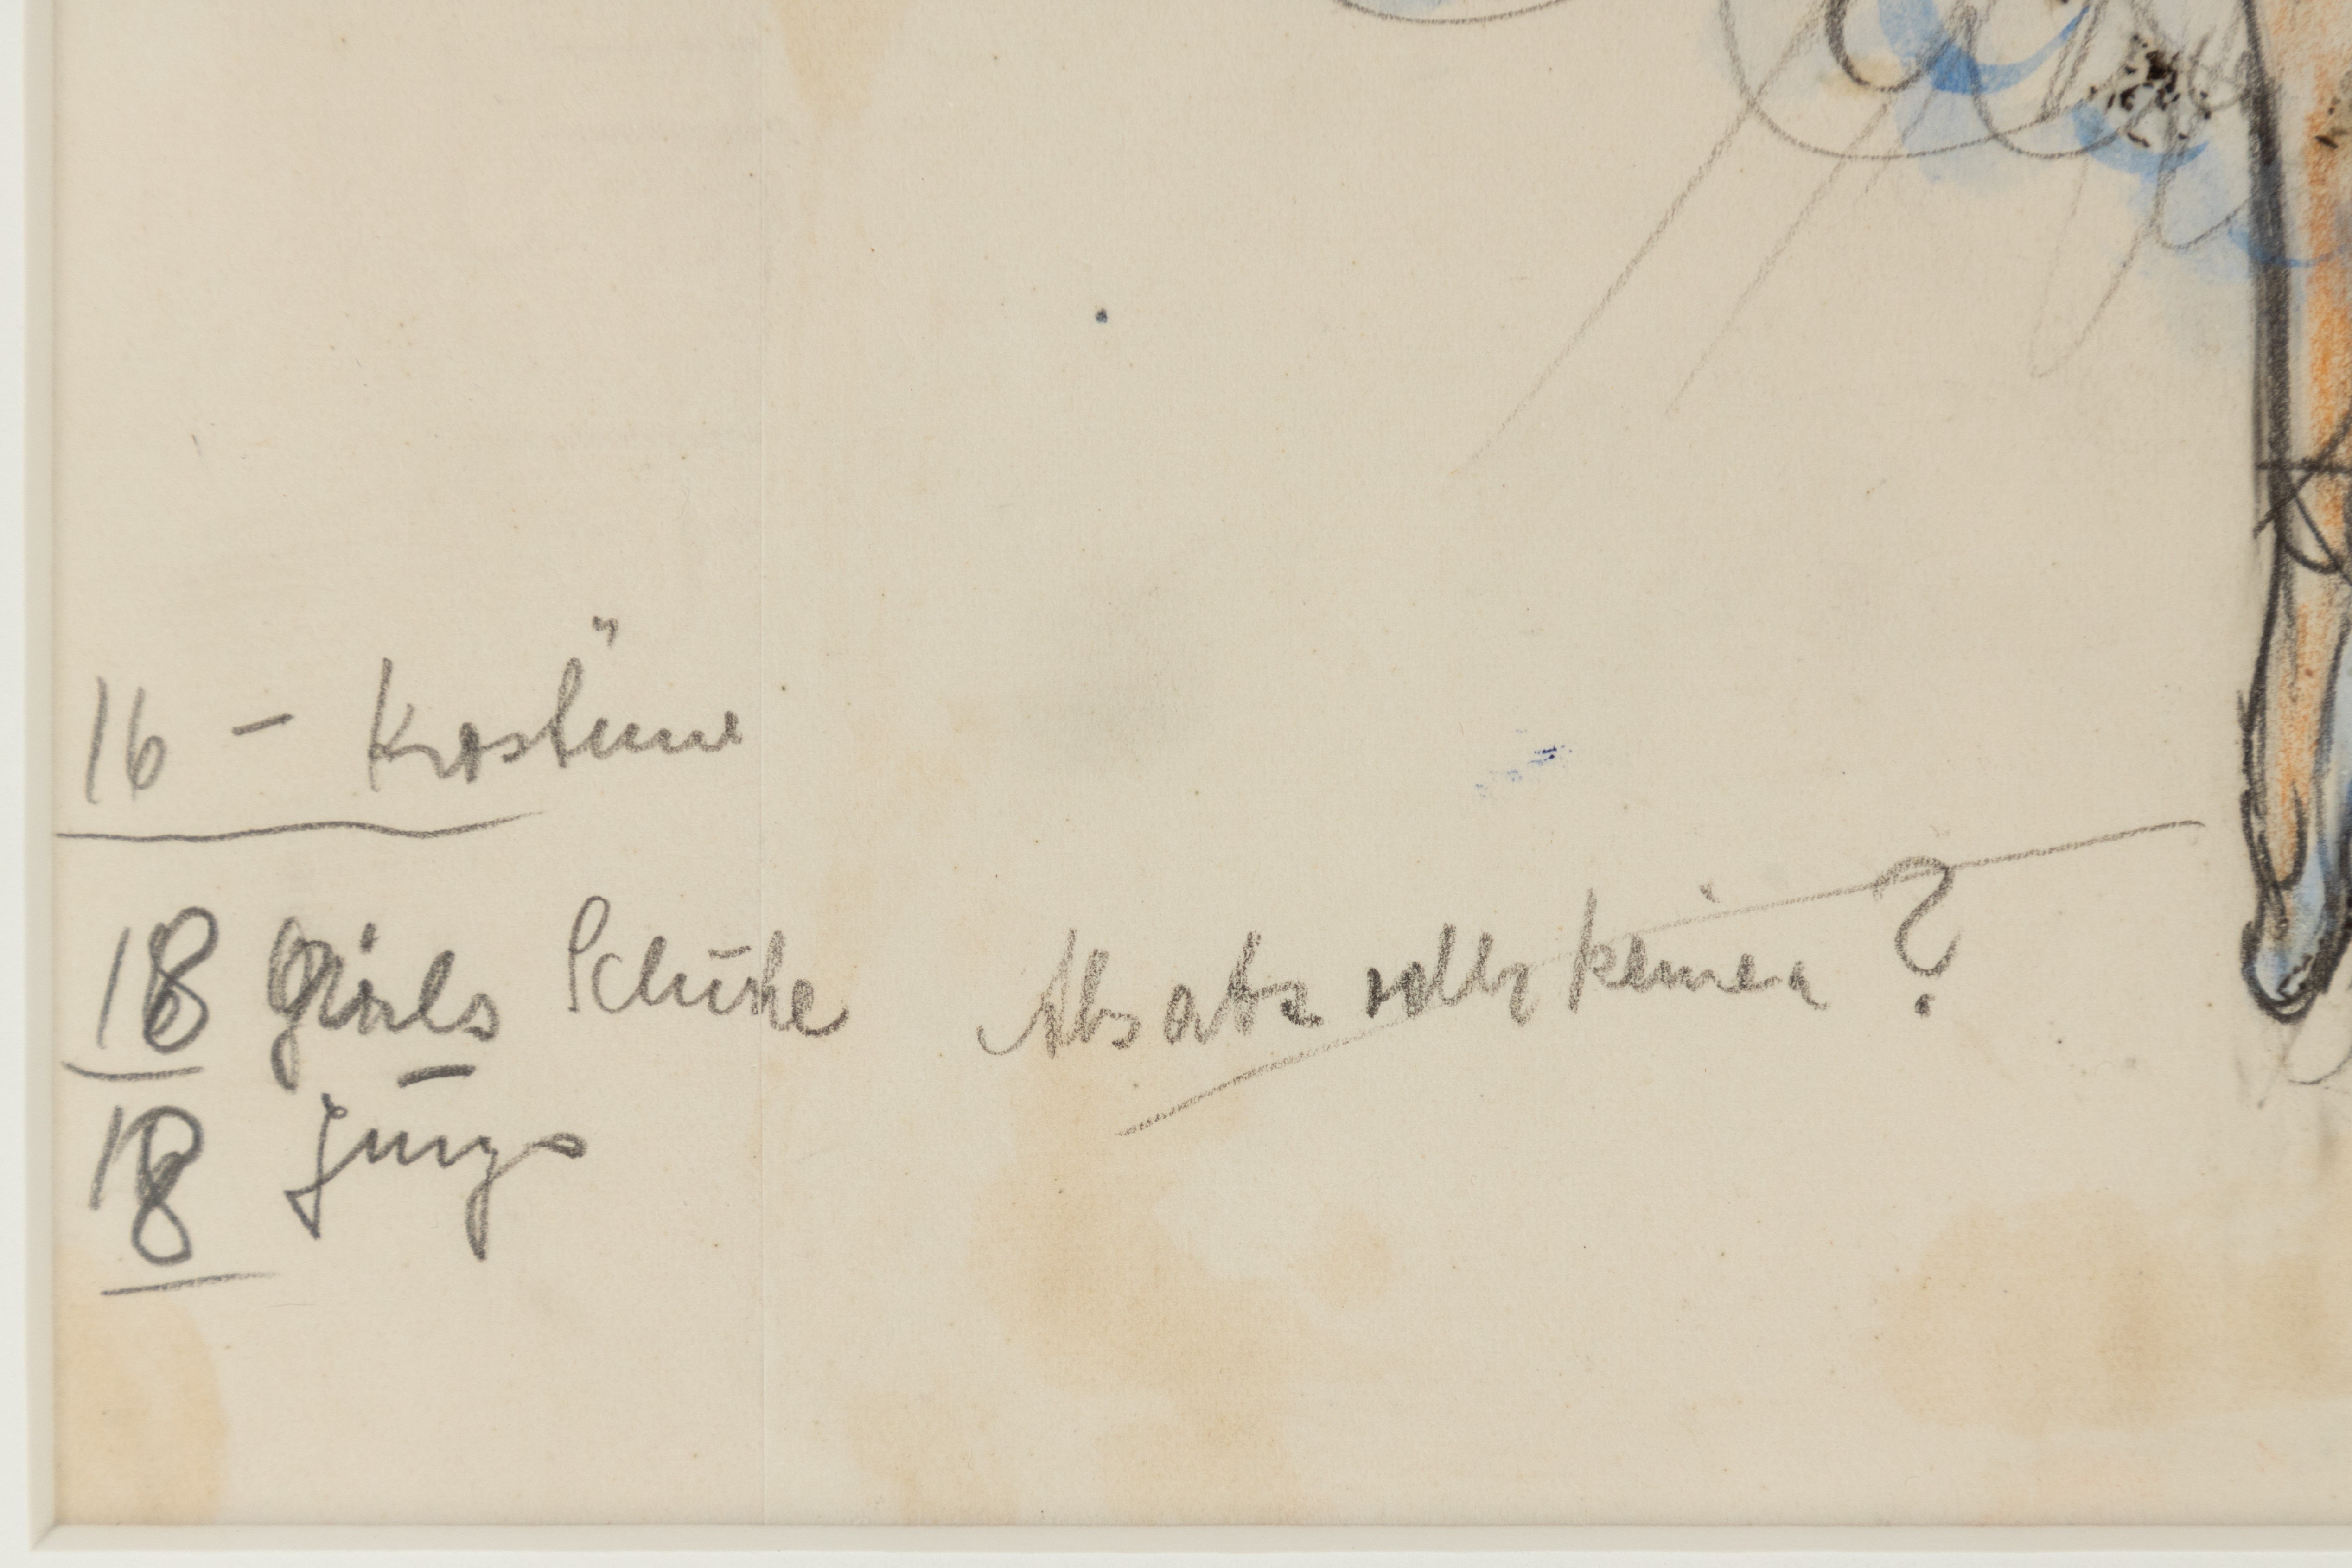 16 – Kostüme
18 Girls Schuhe Absatz oder keinen ?
18 Jungs